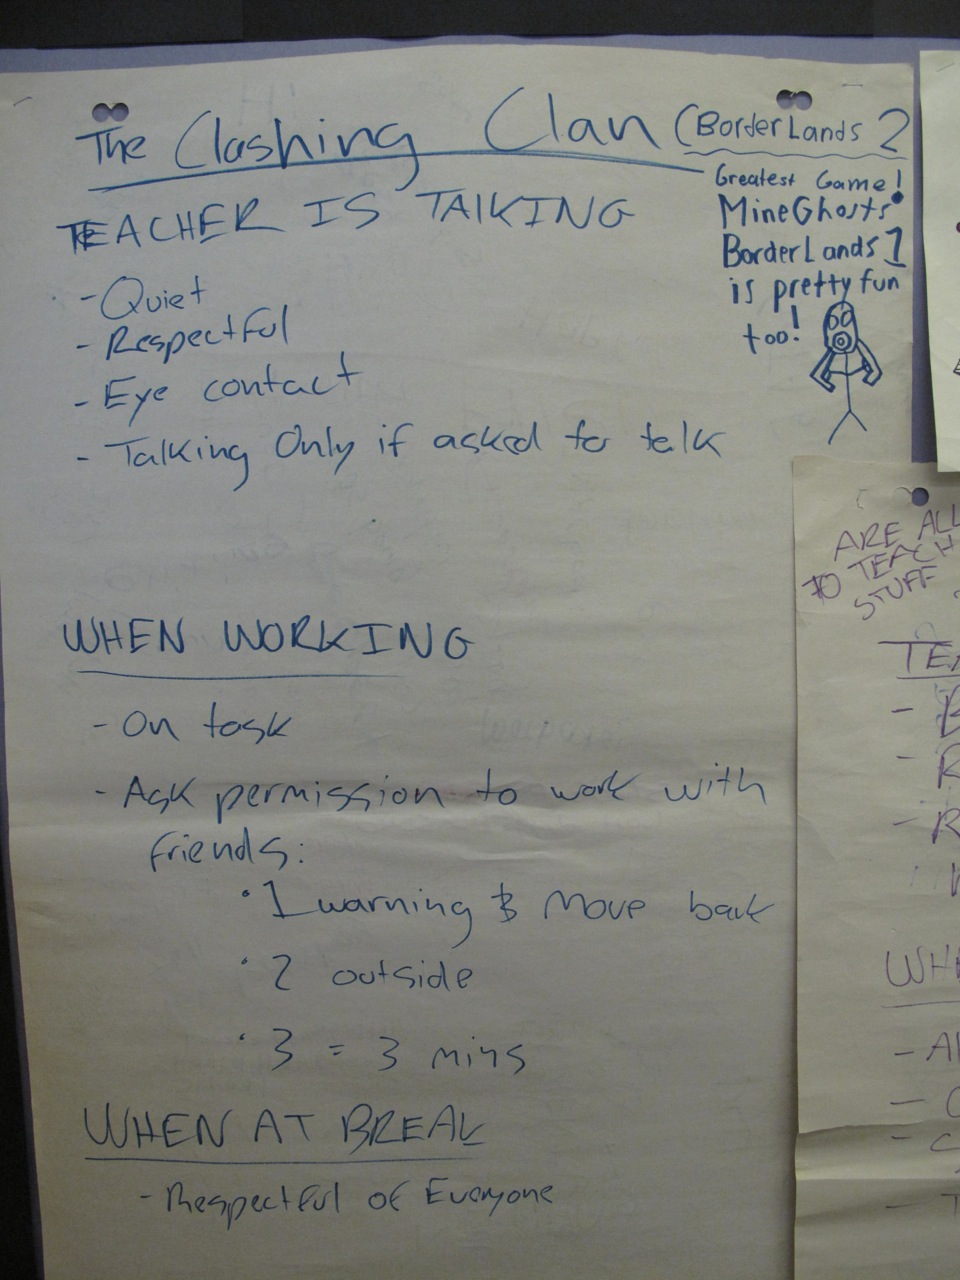 The Clashing Clan (BorderLands 2
Greatest Game!
MineGhosts
BorderLands 1
is pretty fun
too!
TEACHER IS TALKING
- Quiet
- Respectful
- Eye contact
- Talking Only if asked to talk
WHEN WORKING
- On task
- Ask permission to work with
friends:
• 1 warning & Move back
• 2 outside
• 3 = 3 mins
WHEN AT BREAK
- Respectful of Everyone
ARE ALL
TO TEACH
STUFF
TEA
- B
- R
- R
WHE
- Al